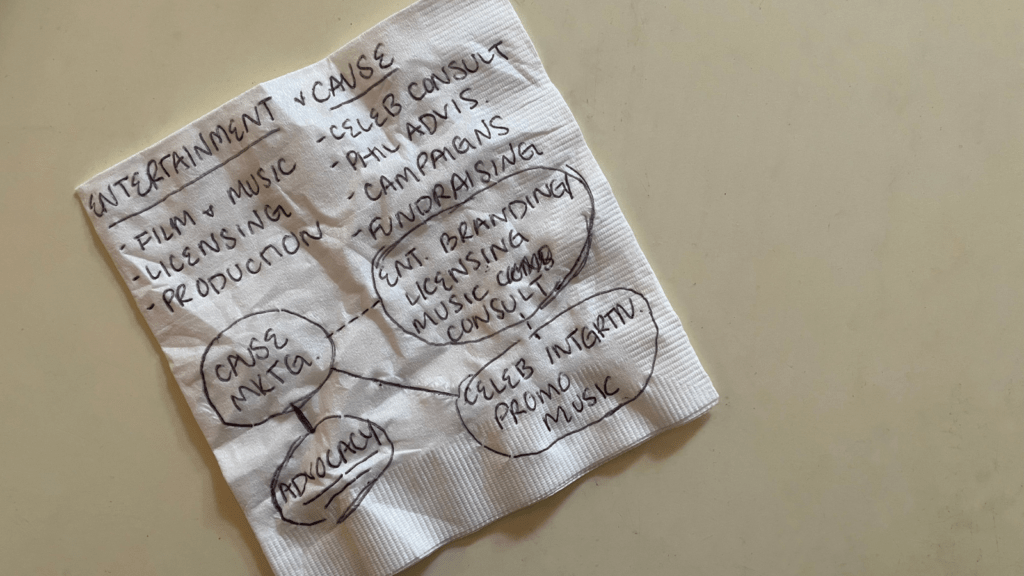 ENTERTAINMENT & CAUSE
- FILM & MUSIC
- LICENSING
- PRODUCTION
- CELEB CONSULT
- PHIL ADVIS.
- CAMPAIGNS
- FUNDRAISING
ENT. BRANDING/
LICENSING
MUSIC
CONSULT.
CAUSE
MKTG.
CELEB INTGRTN.
PROMO
MUSIC
ADVOCACY